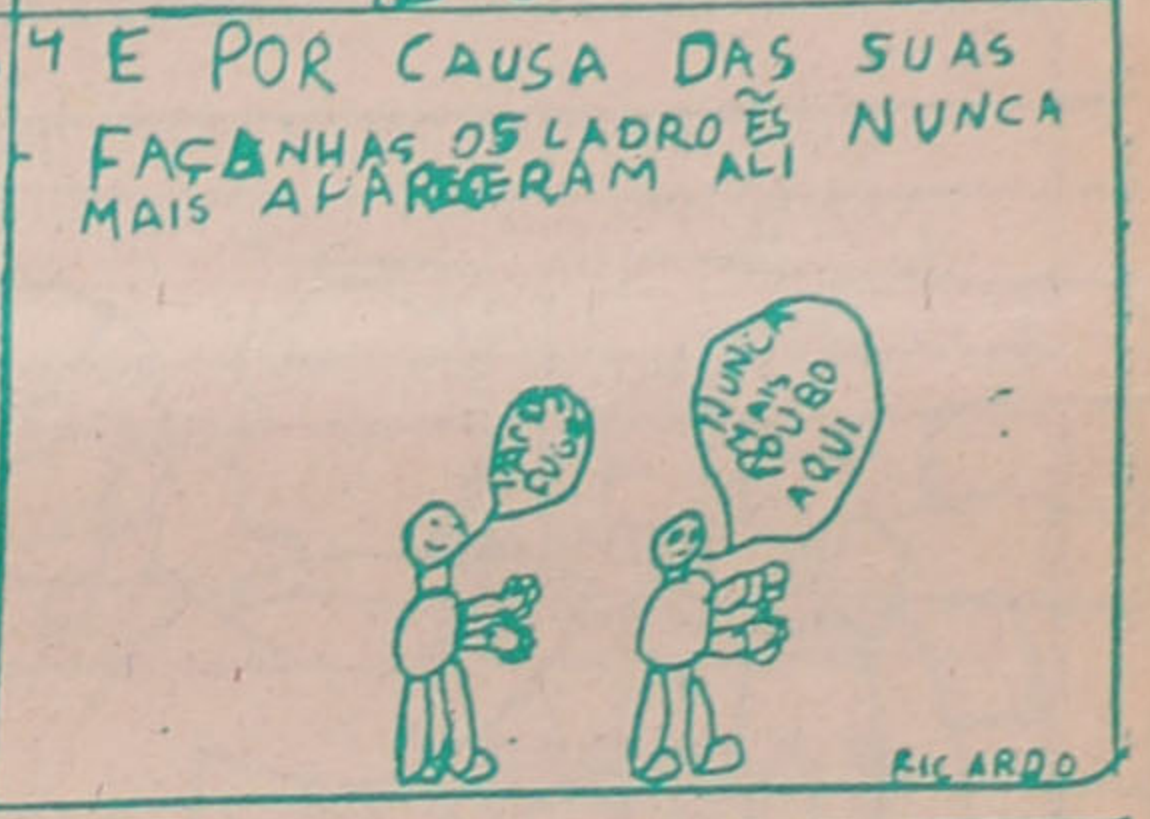 4 E POR CAUSA DAS SUAS
FAÇANHAS OS LADROES NUNCA
MAIS APARECERAM ALI
NUNCA
MAIS
ROUBO
AQUI
RICARDO